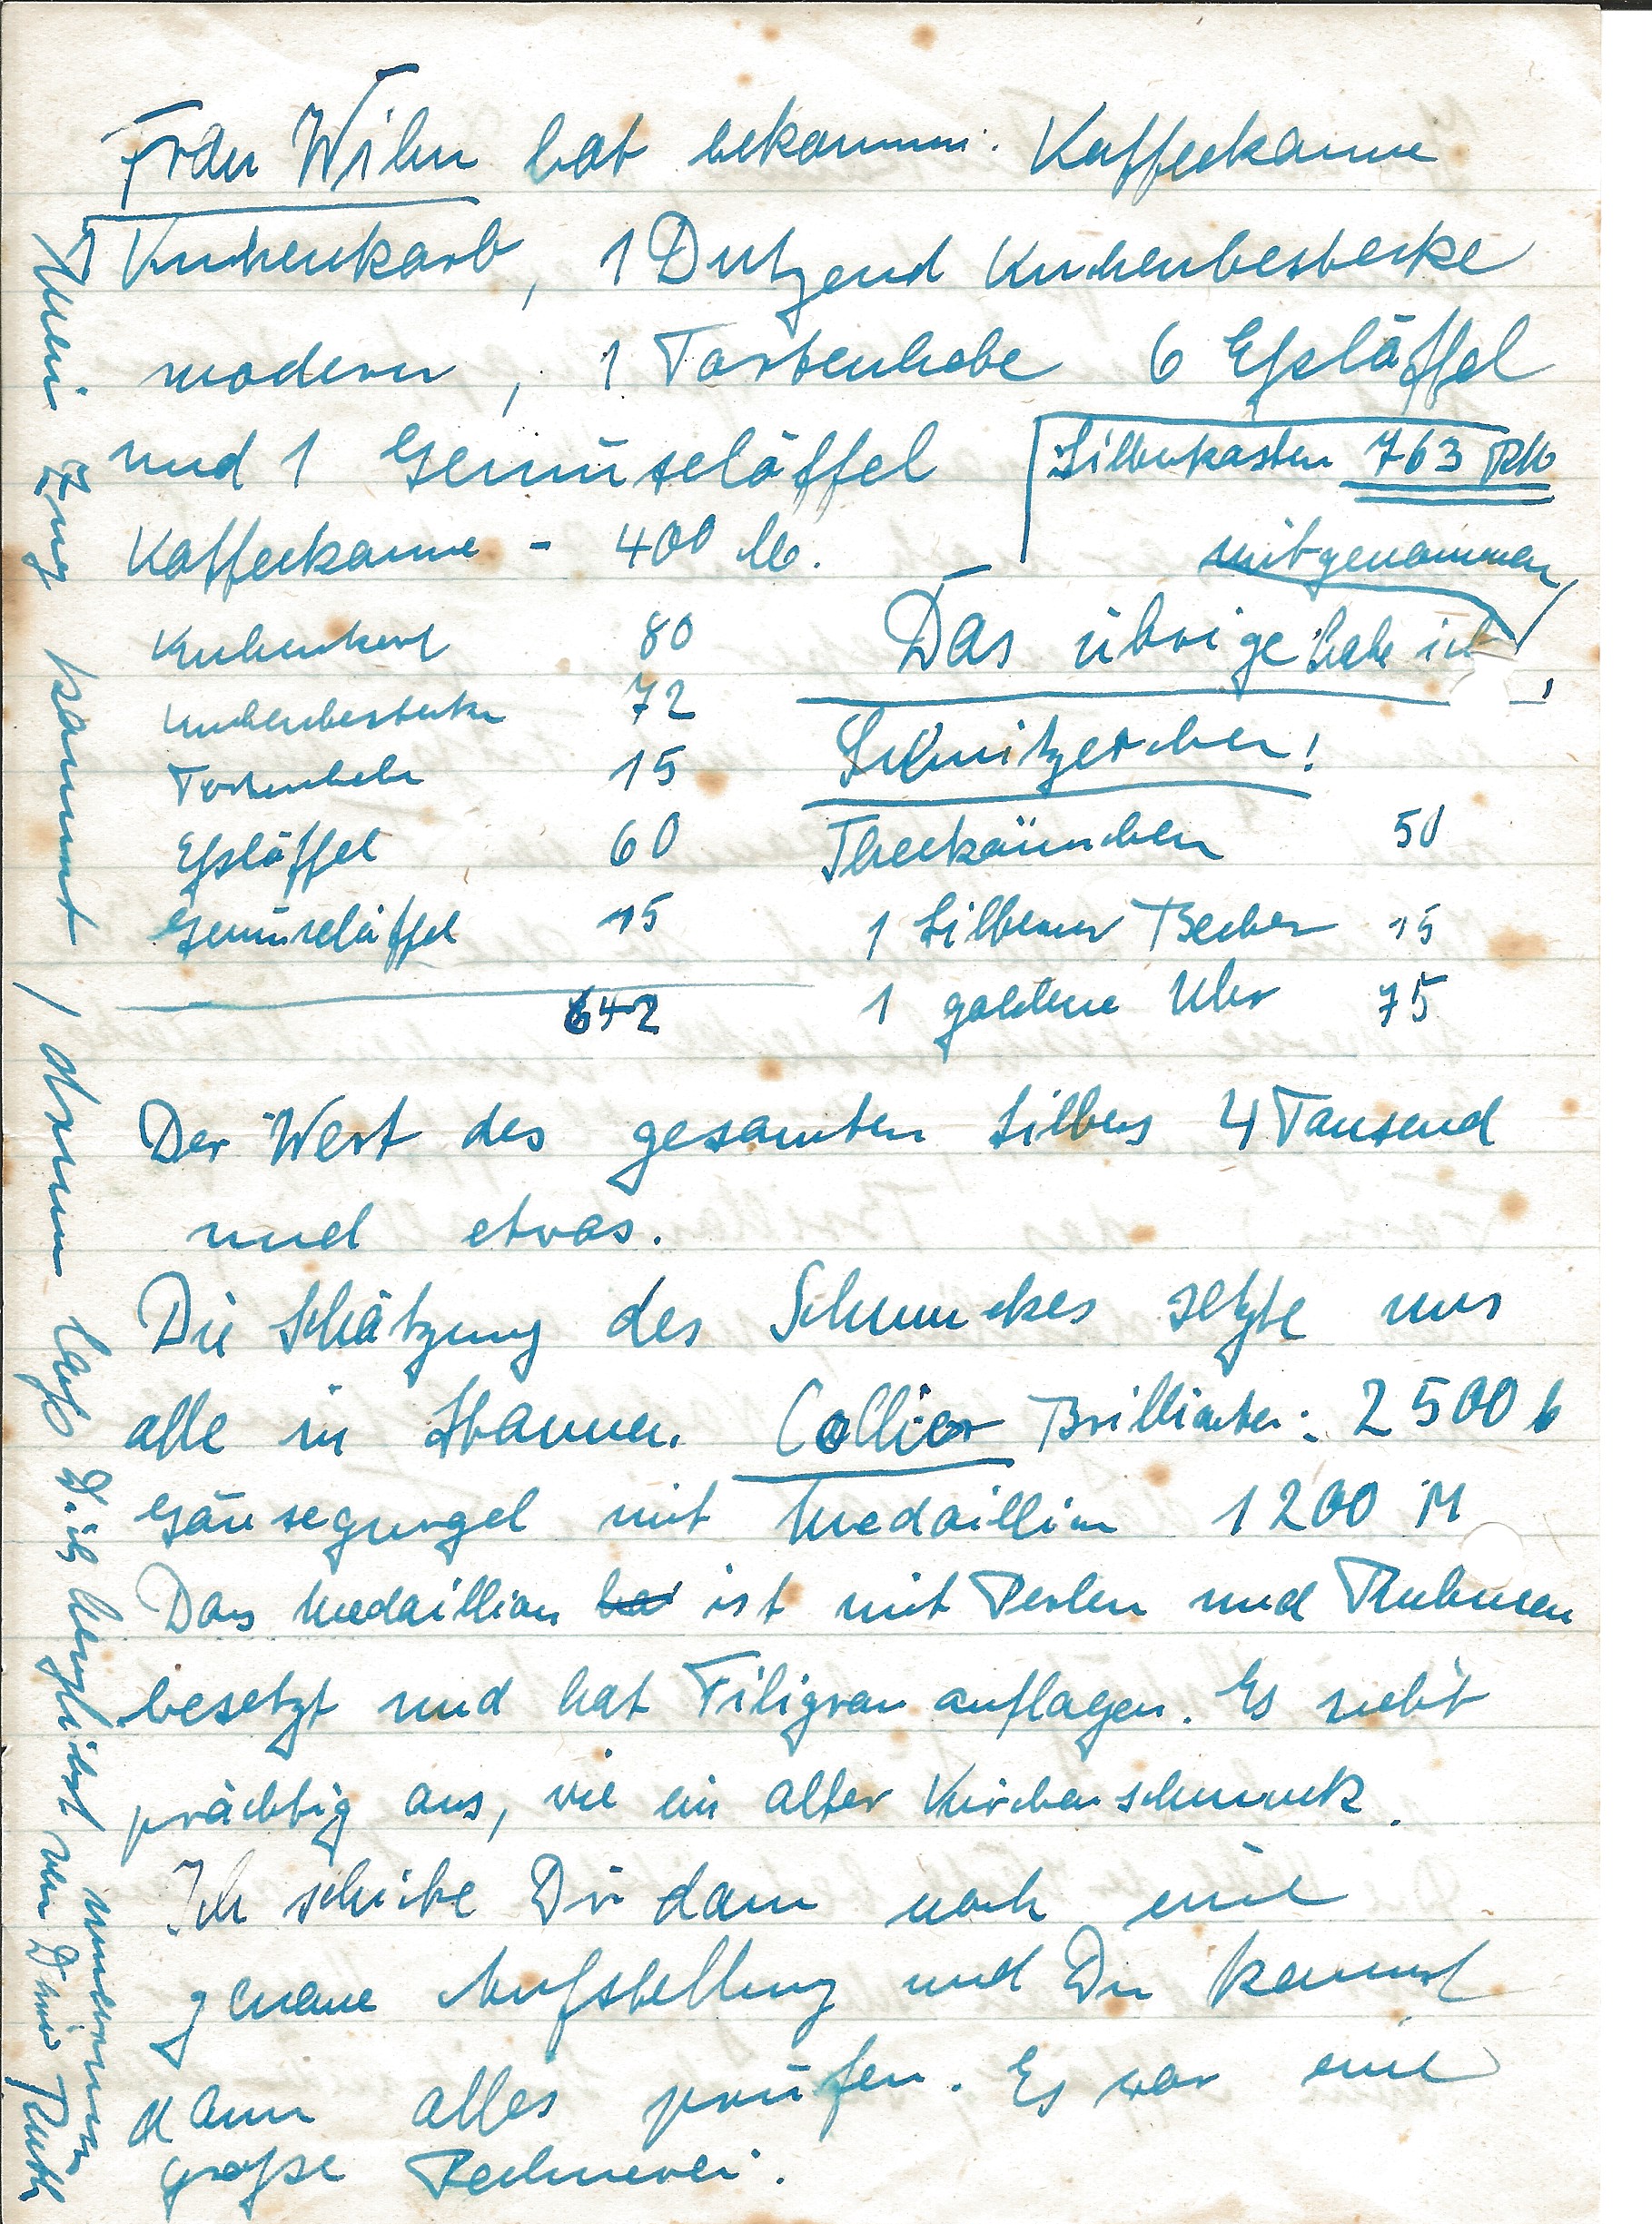 Frau Wilm hat bekommen: Kaffeekanne
Kuchenkorb, 1 Dutzend Kuchenbestecke
modern, 1 Tortenhebe 6 Eßlöffel
und 1 Gemüselöffel
Silberkasten 763 RM
Kaffeekanne - 400 M.
mitgenommen
Kuchenkorb 80
Das übrige habe ich
Kuchenbestecke 72
Schnitzerchen!
Tortenhebe 15
Eßlöffel 60
Theekännchen 50
Gemüselöffel 15
1 Silberner Becher 15
642
1 goldene Uhr 75
Der Wert des gesamten Silbers 4 Tausend
und etwas.
Die Schätzung des Schmuckes setzte uns
alle in Staunen. Collier Brillianten: 2500
Gänsegurgel mit Medaillion 1200 M
Das Medaillion ist mit Perlen und Rubinen
besetzt und hat Filigran auflagen. Es sieht
prächtig aus, wie ein alter Kirchenschmuck.
Ich schicke Dir dann noch eine
genaue Aufstellung und Du kannst
dann alles prüfen. Es war eine
große Rechnerei.
Mein Zug kommt, drum laß Dich herzlichst umarmen
von Deiner Ruth